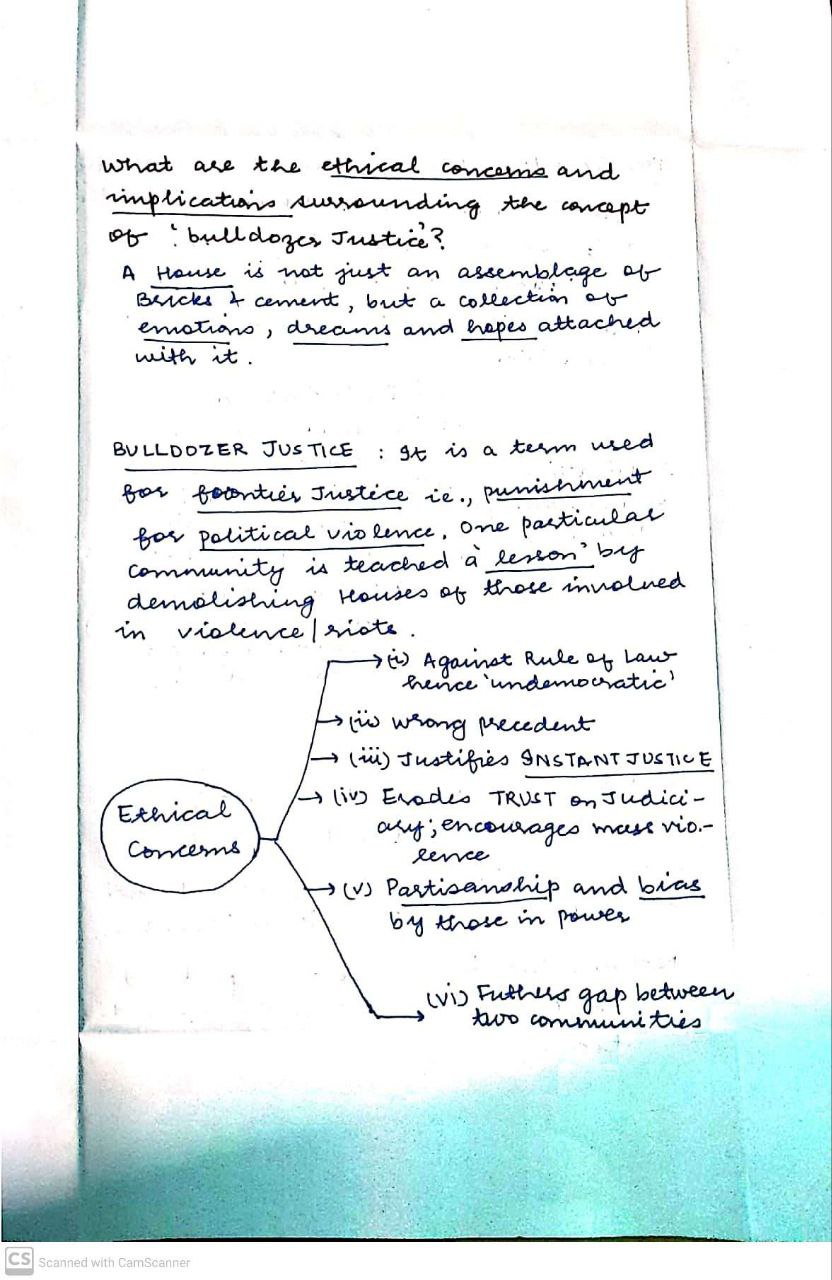 What are the ethical concerns and
implications surrounding the concept
of 'bulldozer Justice'?
A House is not just an assemblage of
Bricks & cement, but a collection of
emotions, dreams and hopes attached
with it.
BULLDOZER JUSTICE : It is a term used
for frontier Justice ie., punishment
for political violence. One particular
community is teached a 'lesson' by
demolishing Houses of those involved
in violence/riots.
(i) Against Rule of Law
hence 'undemocratic'
(ii) wrong precedent
(iii) Justifies INSTANT JUSTICE
Ethical
Concerns
(iv) Erodes TRUST on Judici-
ary; encourages mass vio-
lence
(v) Partisanship and bias
by those in power
(vi) Futhers gap between
two communities
CS Scanned with CamScanner